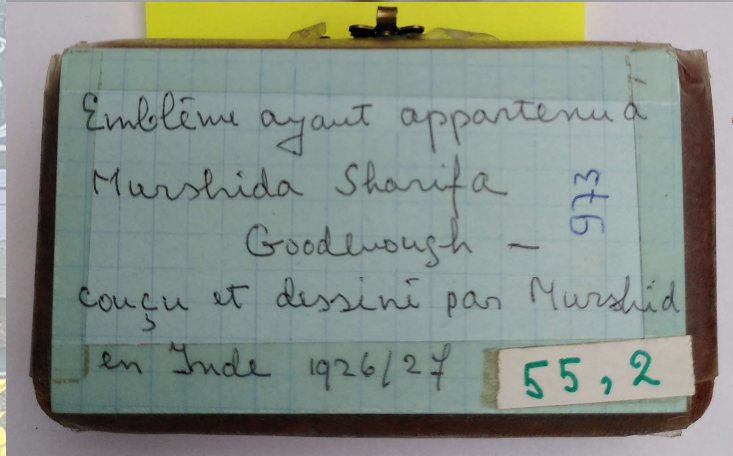 Emblême ayant appartenu à
Murshida Sharifa
973
Goodenough –
conçu et dessiné par Murshid
en Inde 1926/27
55,2